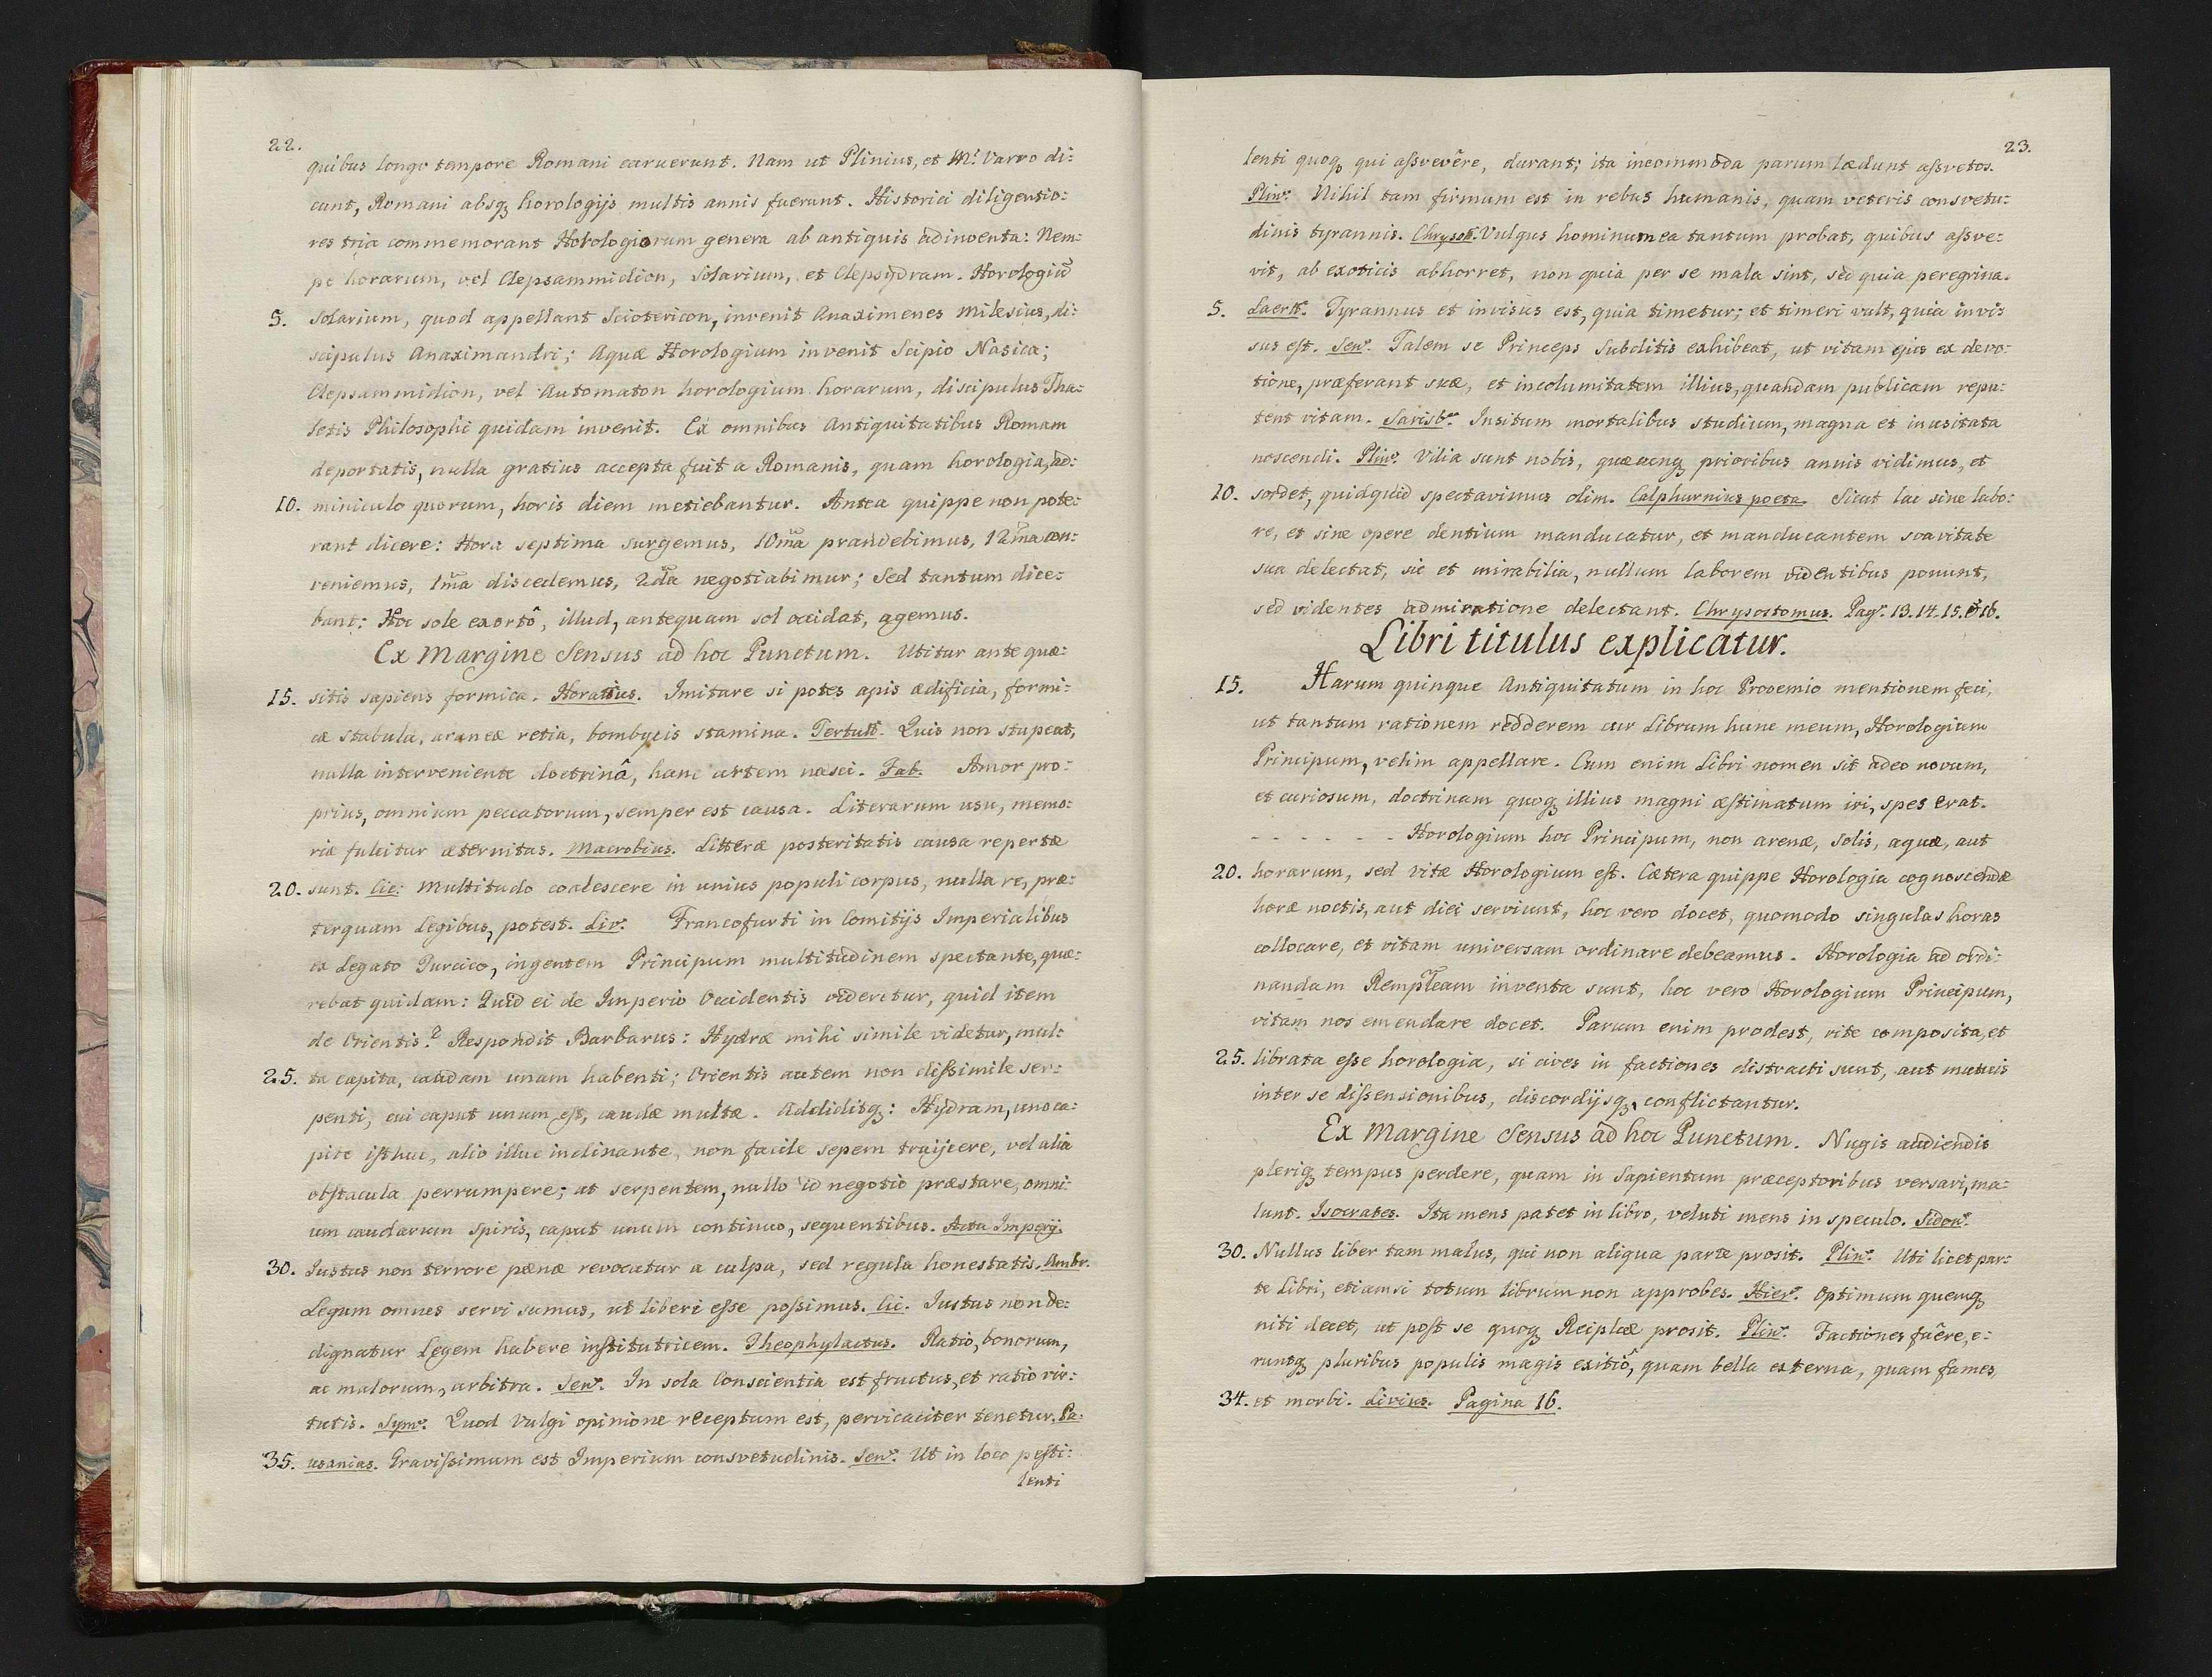 22.
quibus longo tempore Romani caruerunt. Nam ut Plinius, et M: Varro di:
cunt, Romani absq; horologijs multis annis fuerunt. Historici diligentio:
res tria commemorant Horologiorum genera ab antiquis adinventa: Nem:
pe horarum, vel Clepsammidion, Solarium, et Clepsydram. Horologiū
5. Solarium, quod appellant Sciotericon, invenit Anaximenes Milesius, di:
scipulus Anaximandri; Aquæ Horologium invenit Scipio Nasica;
Clepsammidion, vel Automaton horologium horarum, discipulus Tha:
letis Philosophi quidam invenit. Ex omnibus Antiquitatibus Romam
deportatis, nulla gratius accepta fuit a Romanis, quam horologia, ad:
10. miniculo quorum, horis diem metiebantur. Antea quippe non pote:
rant dicere: Hora septima surgemus, 10ma prandebimus, 12ma con:
veniemus, 1ma discedemus, 2da negotiabimur; Sed tantum dice:
bant: Hoc sole exortô, illud, antequam sol occidat, agemus.
Ex Margine Sensus ad hoc Punctum. Utitur ante quæ:
15. sitis sapiens formica. Horatius. Imitare si potes apis ædificia, formi:
cæ stabula, araneæ retia, bombycis stamina. Tertull. Quis non stupeat,
nulla interveniente doctrinâ, hanc artem nasci. Fab. Amor pro:
prius, omnium peccatorum, semper est causa. Literarum usu, memo:
riæ fulcitur æternitas. Macrobius. Litteræ posteritatis causa repertæ
20. sunt. Cic: Multitudo coalescere in unius populi corpus, nulla re, præ:
terquam Legibus, potest. Liv: Francofurti in Comitijs Imperialibus
ex Legato Turcico, ingentem Principum multitudinem spectante, quæ:
rebat quidam: Quid ei de Imperio Occidentis videretur, quid item
de Orientis? Respondit Barbarus: Hydræ mihi simile videtur, mul:
25. ta capita, caudam unam habenti; Orientis autem non dissimile ser:
penti, cui caput unum est, caudæ multæ. Addiditq;: Hydram, uno ca:
pite isthuc, alio illuc inclinante, non facile sepem traijcere, vel alia
obstacula perrumpere; at serpentem, nullo id negotio præstare, omni:
um caudarum spiris, caput unum continuo, sequentibus. Acta Imperij.
30. Iustus non terrore pænæ revocatur a culpa, sed regula honestatis. Ambr.
Legum omnes servi sumus, ut liberi esse possimus. Cic. Iustus non de:
dignatur Legem habere institutricem. Theophylactus. Ratio, bonorum,
ac malorum, arbitra. Sen: In sola Conscientia est fructus, et ratio vir:
tutis. Sym: Quod Vulgi opinione receptum est, pervicaciter tenetur. Pa:
35. usanias. Gravissimum est Imperium consvetudinis. Sen: Ut in loco pesti:
lenti
23.
lenti quoq; qui assvevêre, durant; ita incommoda parum lædunt assvetos.
Plin: Nihil tam firmum est in rebus humanis, quam veteris consvetu:
dinis tyrannis. Chrysost: Vulgus hominum ea tantum probat, quibus assve:
vit, ab exoticis abhorret, non quia per se mala sint, sed quia peregrina.
5. Laert: Tyrannus et invisus est, quia timetur; et timeri vult, quia invi:
sus est. Sen: Talem se Princeps Subditis exhibeat, ut vitam ejus ex devo:
tione, præferant suæ, et incolumitatem illius, quandam publicam repu:
tent vitam. Sarisb: Insitum mortalibus studium, magna et inusitata
noscendi. Plin: Vilia sunt nobis, quæcunq; prioribus annis vidimus, et
10. sordet, quidquid spectavimus olim. Calphurnius poeta. Sicut lac sine labo:
re, et sine opere dentium manducatur, et manducantem svavitate
sua delectat, sic et mirabilia, nullum laborem videntibus ponunt,
sed videntes admiratione delectant. Chrysostomus. Pag: 13. 14. 15. et 16.
Libri titulus explicatur.
15. Harum quinque Antiquitatum in hoc Prooemio mentionem feci,
ut tantum rationem redderem cur Librum hunc meum, Horologium
Principum, velim appellare. Cum enim Libri nomen sit adeo novum,
et curiosum, doctrinam quoq; illius magni æstimatum iri, spes erat.
- - - - - - - Horologium hoc Principum, non arenæ, Solis, aquæ, aut
20. horarum, sed vitæ Horologium est. Cætera quippe Horologia cognoscendæ
horæ noctis, aut diei serviunt, hoc vero docet, quomodo singulas horas
collocare, et vitam universam ordinare debeamus. Horologia ad ordi:
nandam Remplcam inventa sunt, hoc vero Horologium Principum,
vitam nos emendare docet. Parum enim prodest, rite composita, et
25. librata esse horologia, si cives in factiones distracti sunt, aut mutuis
inter se dissensionibus, discordijsq; conflictantur.
Ex Margine Sensus ad hoc Punctum. Nugis audiendis
pleriq; tempus perdere, quam in Sapientum præceptoribus versari, ma:
lunt. Isocrates. Ita mens patet in libro, veluti mens in speculo. Sidon:
30. Nullus liber tam malus, qui non aliqua parte prosit. Plin: Uti licet par:
te Libri, etiamsi totum librum non approbes. Hier: Optimum quemq;
niti decet, ut post se quoq; Reiplcæ prosit. Plin: Factiones fuêre, e:
runtq; pluribus populis magis exitiô, quam bella externa, quam fames,
34. et morbi. Livius. Pagina 16.